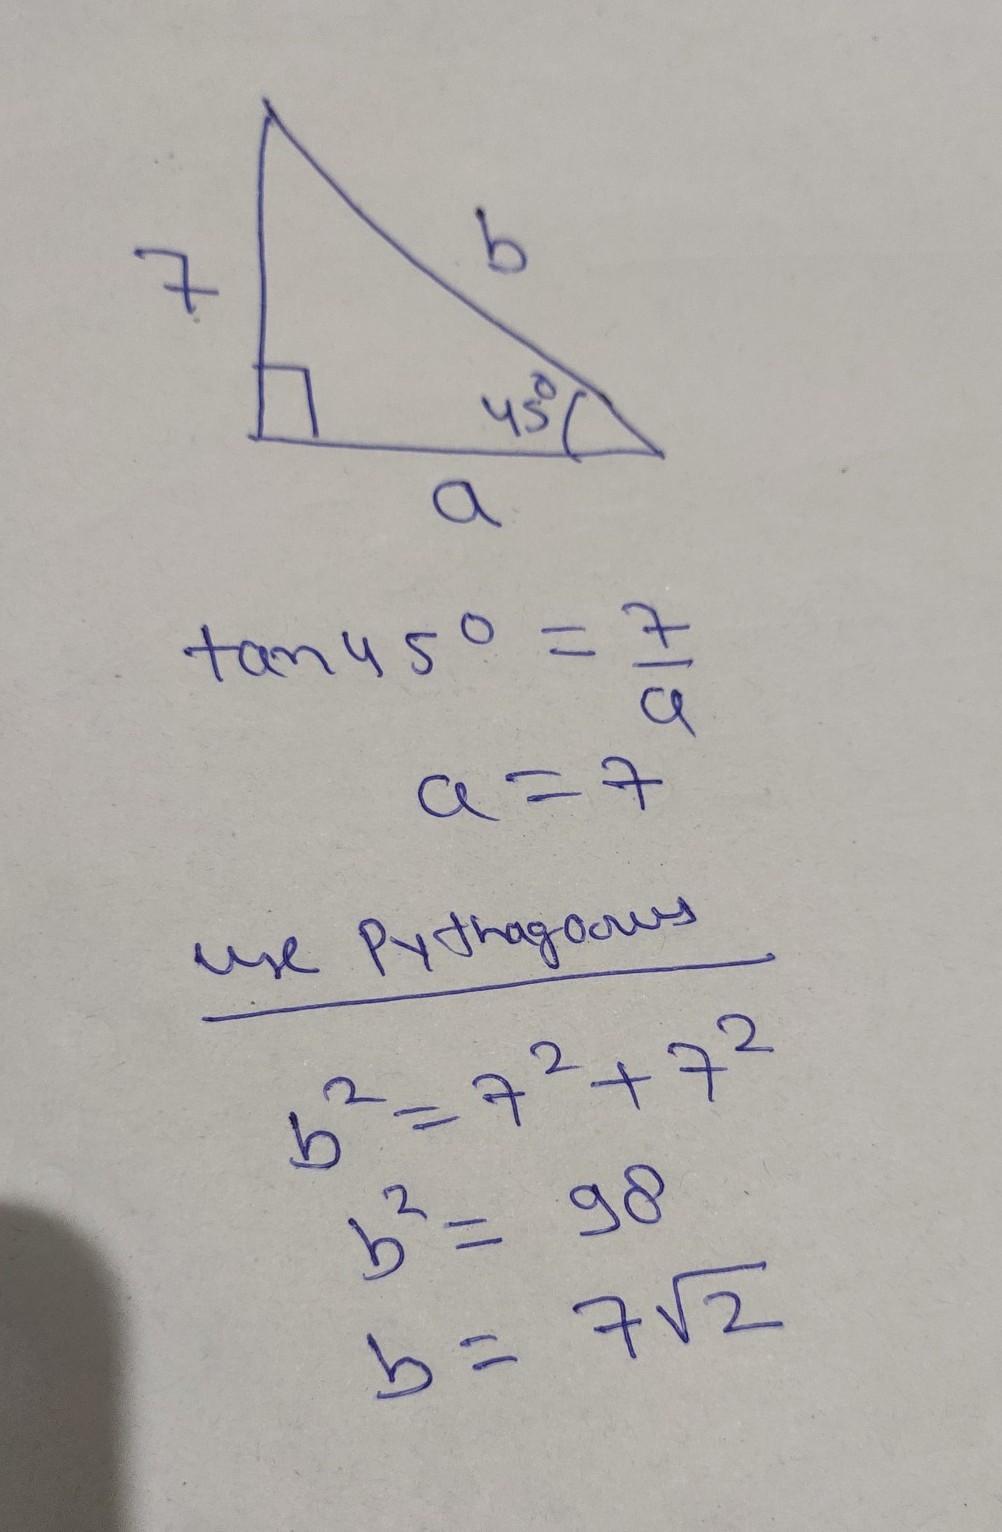 7
b
45°
a
tan45° = 7/a
a = 7
use Pythagoorus
b² = 7² + 7²
b² = 98
b = 7√2